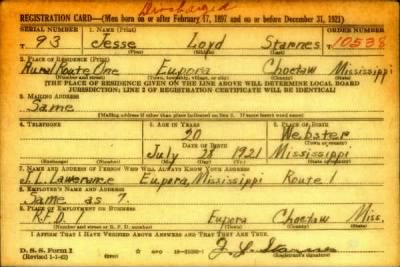 Discharged
REGISTRATION CARD—(Men born on or after February 17, 1897 and on or before December 31, 1921)
SERIAL NUMBER 1. NAME (Print) ORDER NUMBER
T 93 Jesse Loyd Starnes 10538
(First) (Middle) (Last)
2. PLACE OF RESIDENCE (Print)
Rural Route One Eupora Choctaw Mississippi
(Number and street) (Town, township, village, or city) (County) (State)
[THE PLACE OF RESIDENCE GIVEN ON THE LINE ABOVE WILL DETERMINE LOCAL BOARD
JURISDICTION; LINE 2 OF REGISTRATION CERTIFICATE WILL BE IDENTICAL]
3. MAILING ADDRESS
Same
[Mailing address if other than place indicated on line 2. If same insert word same]
4. TELEPHONE 5. AGE IN YEARS 6. PLACE OF BIRTH
20 Webster
DATE OF BIRTH (Town or county)
July 28 1921 Mississippi
(Exchange) (Number) (Mo.) (Day) (Yr.) (State or country)
7. NAME AND ADDRESS OF PERSON WHO WILL ALWAYS KNOW YOUR ADDRESS
Eupora, Mississippi Route 1
8. EMPLOYER'S NAME AND ADDRESS
Same as 7.
9. PLACE OF EMPLOYMENT OR BUSINESS
R.F.D. 1 Eupora Choctaw Miss.
(Number and street or R. F. D. number) (Town) (County) (State)
I AFFIRM THAT I HAVE VERIFIED ABOVE ANSWERS AND THAT THEY ARE TRUE.
D. S. S. Form 1
(Revised 1-1-42) (over) (Registrant's signature)